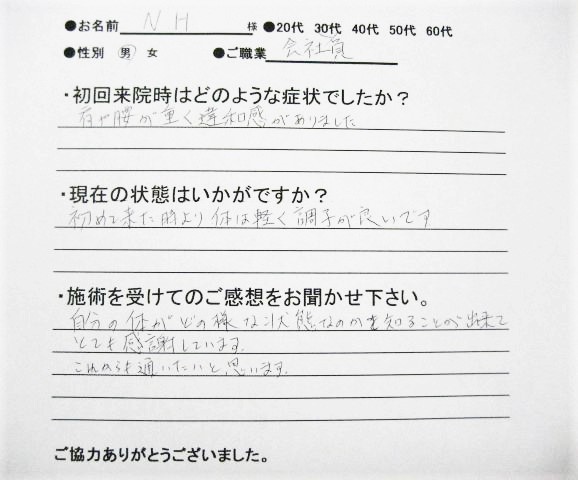 ●お名前 N H 様 ●20代 30代 40代 50代 60代
●性別 男 女 ●ご職業 会社員
・初回来院時はどのような症状でしたか？
肩や腰が重く違和感がありました
・現在の状態はいかがですか？
初めて来た時より体は軽く調子が良いです
・施術を受けてのご感想をお聞かせ下さい。
自分の体がどの様な状態なのかを知ることが出来て
とても感謝しています。
これからも通いたいと思います。
ご協力ありがとうございました。